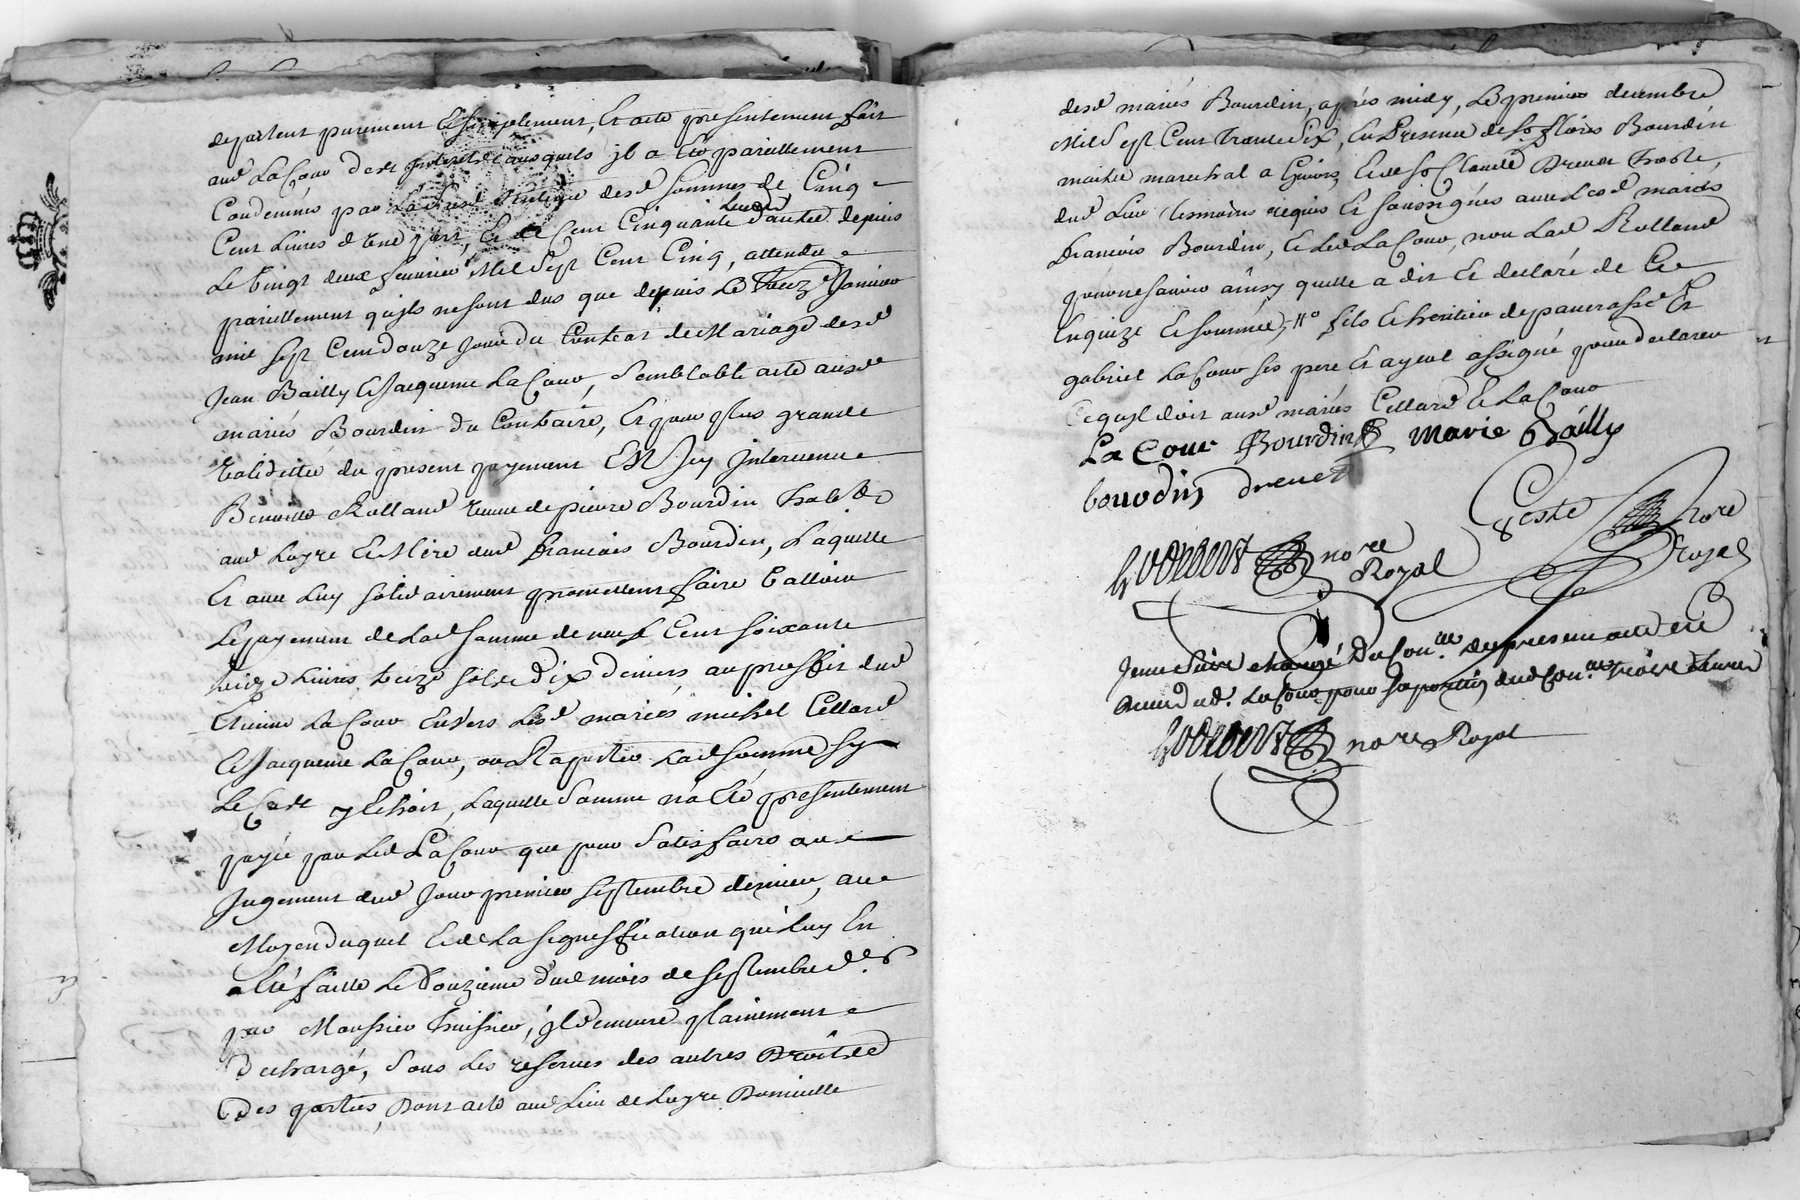 departent purement & simplement, Et acte presentement fait
aud LaCour desd Interets ausquels jl a Eté pareillement
Condemné par Lad Sentence desd sommes de Cinq
Cent Livres d'Une part, Et de Cent Cinquante Livres d'autre depuis
Le Vingt deux feuvrier Mil Sept Cent Cinq, attendu
pareillement qu'jls ne sont dus que depuis Le Janvier
mil sept Cent douze jour du Contrat de Mariage desd
Jean Bailly & Jacqueme LaCour, Semblable acte ausd
mariés Bourdin du Contraire, Et pour plus grande
Validitée du present payement Est Icy Intervenue
Benoitte Rolland veuve de pierre Bourdin habte
aud Loyre & Mère dud francois Bourdin, Laquelle
Et avec Luy solidairement promettent faire Valloir
Le payement de Lad somme de neuf Cent soixante
treize Livres treize sols dix deniers, au proffit dud
Etienne LaCour Envers Lesd mariés michel Cellard
& Jacqueme LaCour, ou Rapporter Lad somme sy
Le Cas y Echoit, Laquelle Somme n'a Eté presentement
payée par Led LaCour que pour Satisfaire au
Jugement dud Jour premier septembre dernier, au
Moyen duquel Et de La signiffication qui Luy En
a Eté faitte Le Douzieme dud mois de septembre
par Moussier huissier, jl demeure plainement
Dechargé, Sous Les reserves des autres Droits
Des parties, Dont acte aud Lieu de Loyre Domicille
desd mariés Bourdin, après midy, Le premier decembre
Mil Sept Cent trente Six, En Presence de Sr Bourdin
maitre marechal a Givors, Et de Sr Claude Drevet
dud Lieu tesmoins requis Et soussignés avec Lesd mariés
francois Bourdin, & Led LaCour, non Lad Rolland
pour ne scavoir ainsy quelle a dit Et declaré de Ce
Enquize & sommée, fils & heritier de pancrasse Et
gabriel LaCour ses pere Et ayeul assigné pour declarer
Ce qu'jl doit ausd mariés Cellard & LaCour
La Cour Bourdin marie Bailly
bourdin drevet
nore Royal
nore Royal
Je me suis chargé Du Con.lle du present acte
dud. LaCour pour sa portion dud Con.lle
nore Royal